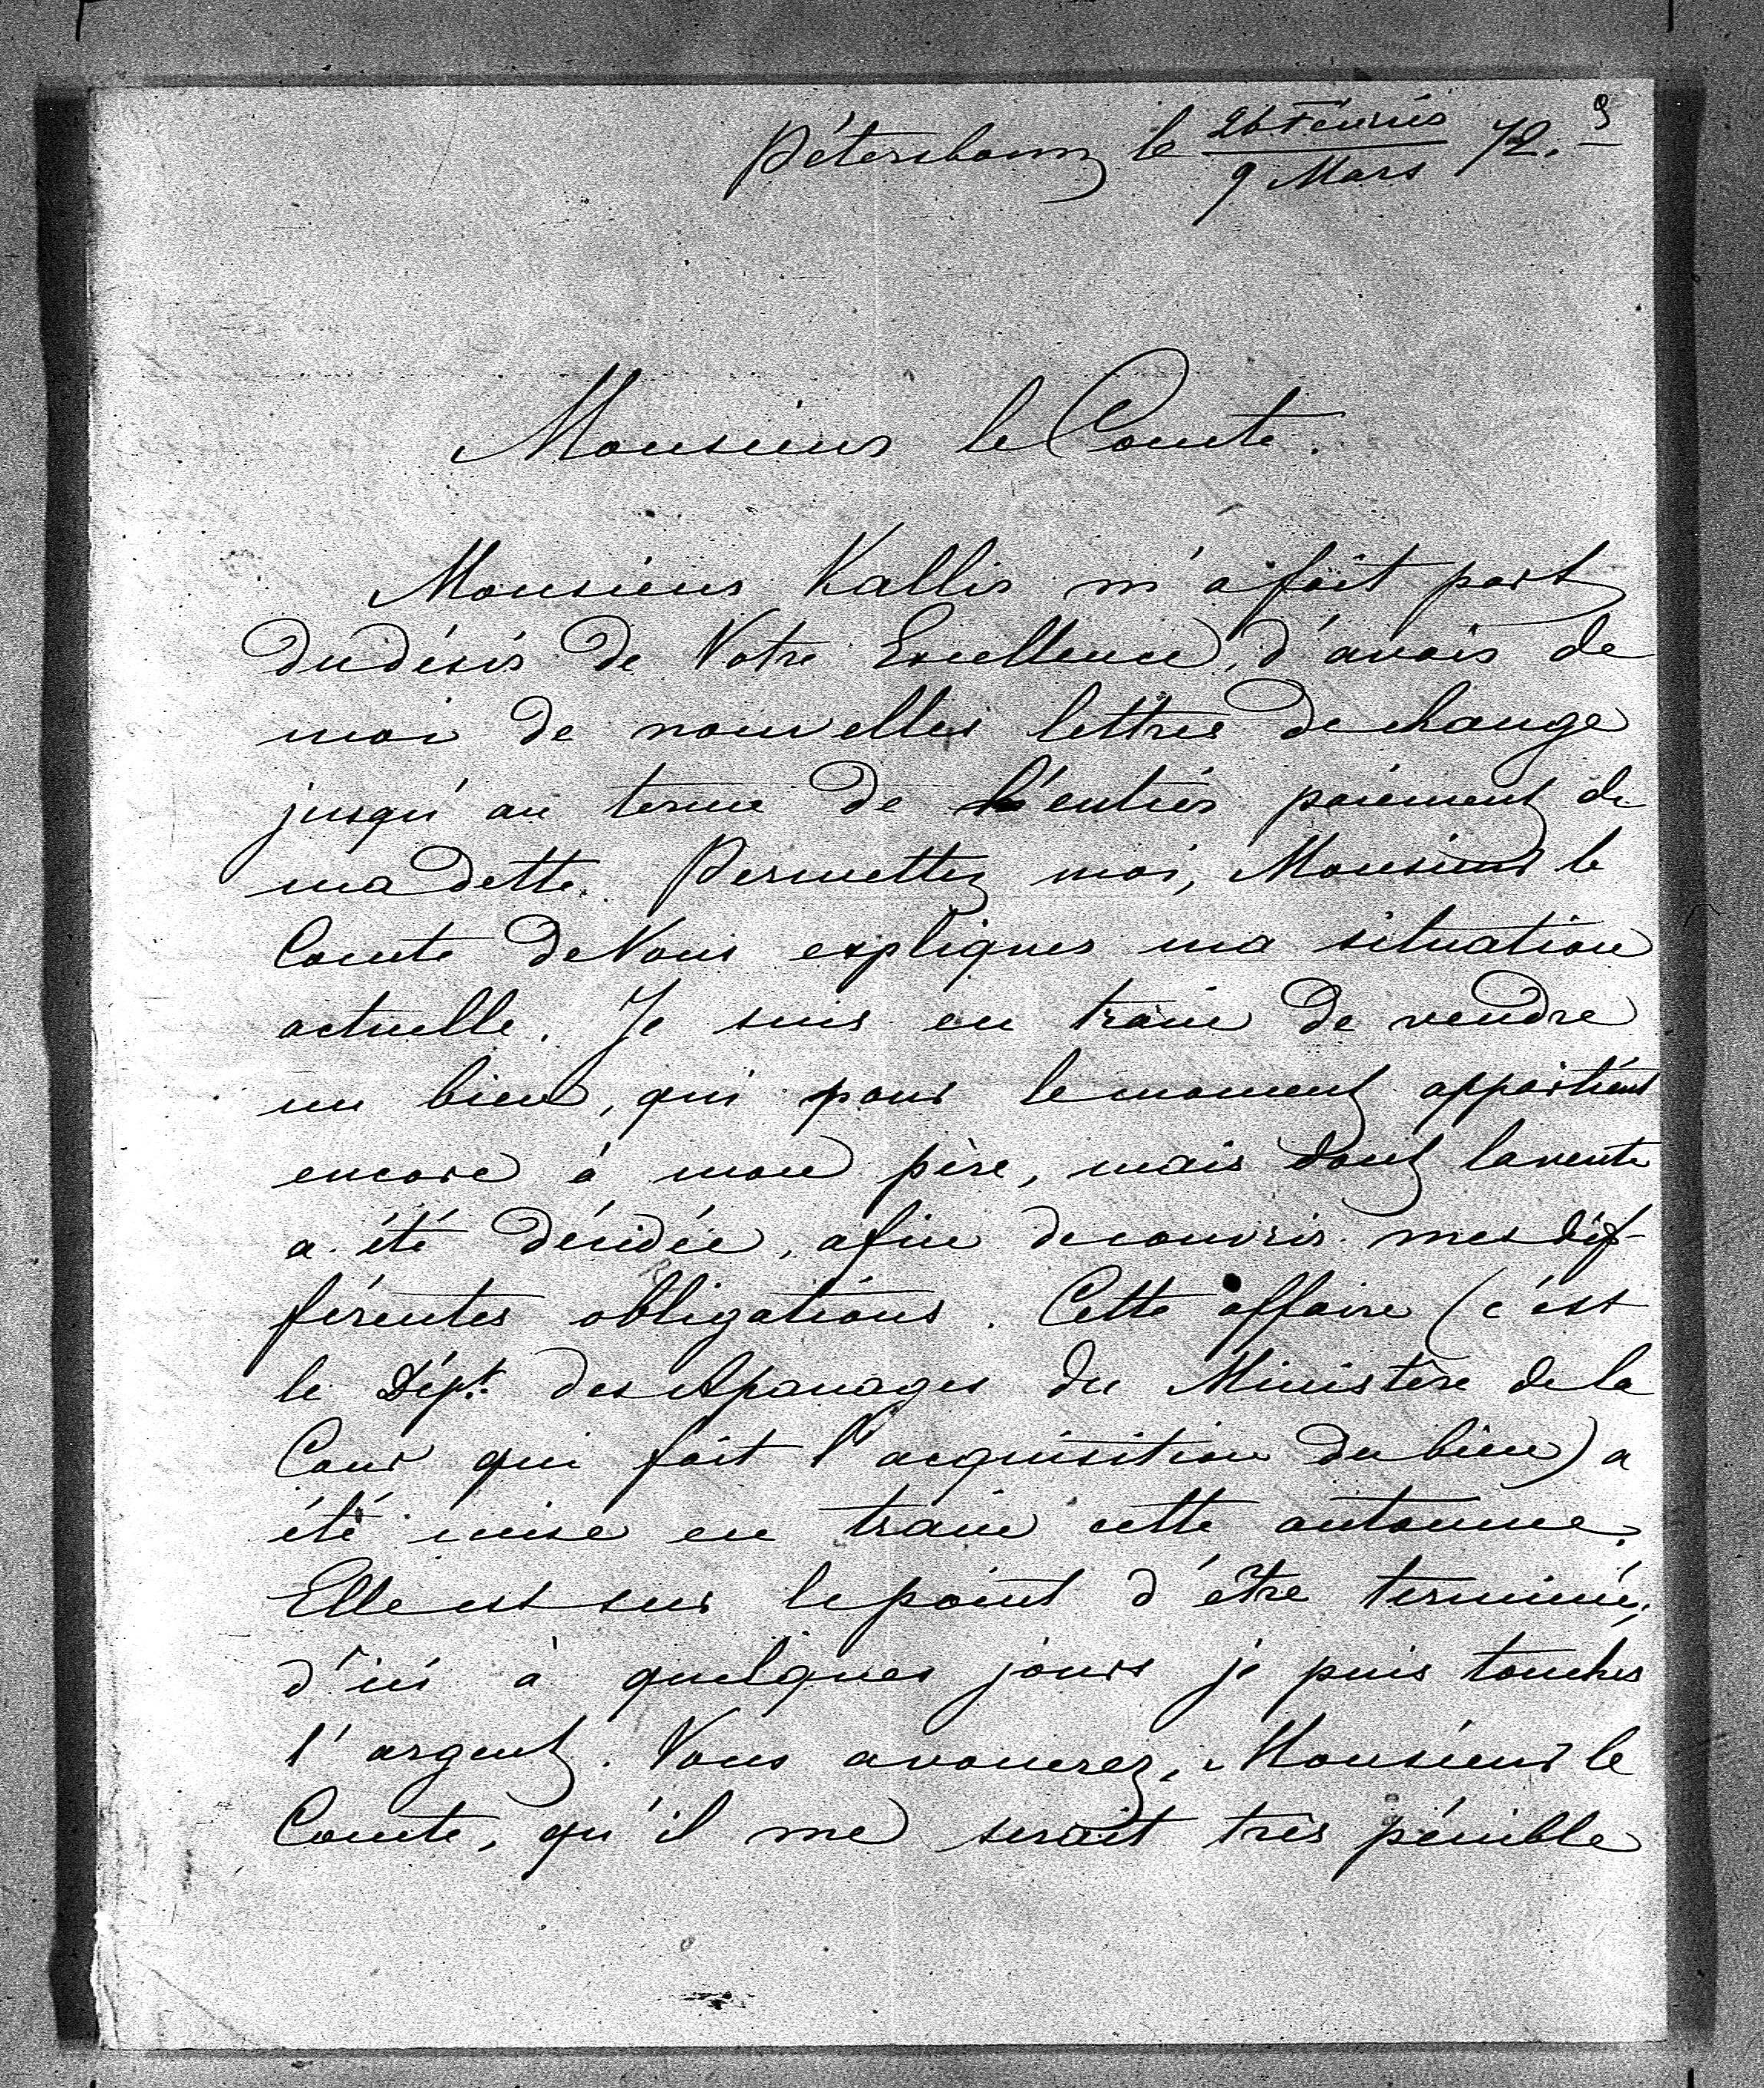 Pétersbourg le 26 Février / 9 Mars 72.
Monsieur le Comte.
Monsieur Kallir m'a fait part
du désir de Votre Excellence, d'avoir de
moi de nouvelles lettres de change
jusqu'au terme de l'entier paiement de
ma dette. Permettez moi, Monsieur le
Comte de Vous expliquer ma situation
actuelle. Je suis en train de vendre
un bien, qui pour le moment appartient
encore à mon père, mais dont la vente
a été décidée, afin de couvrir mes dif-
férentes obligations. Cette affaire (c'est
le Dépt. des Apanages du Ministère de la
Cour qui fait l'acquisition du bien) a
été mise en train cette automne.
Elle est sur le point d'être terminée,
d'ici à quelques jours je puis toucher
l'argent. Vous avouerez, Monsieur le
Comte, qu'il me serait très pénible